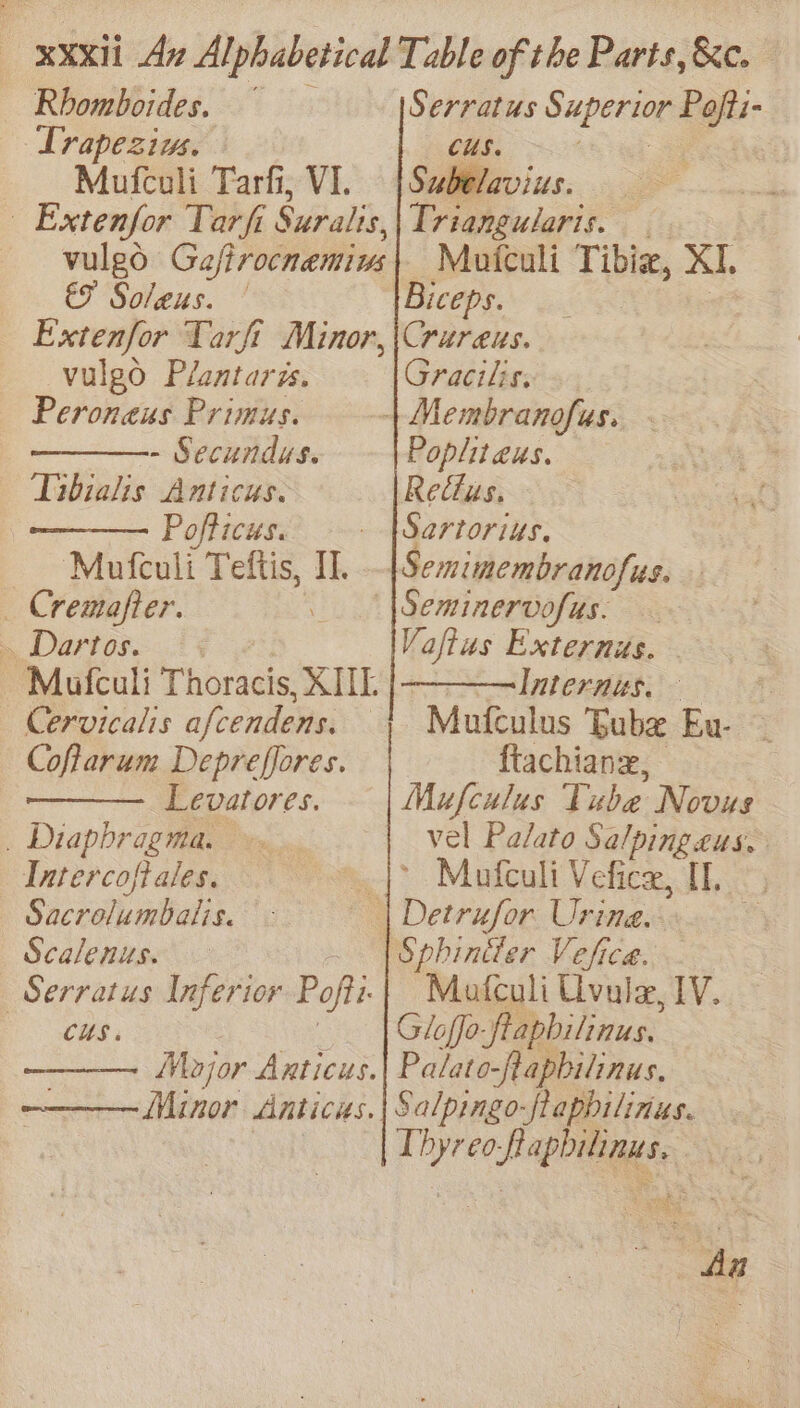 xxxii An Alphabetical Table of the Parts, &c.
Rhomboides.
Trapezius.
Muſculi Tarſi, VI.
Extenſor Tarſi Suralis,
vulgò Gaſtrocnæmius
& Solæus.
Extenſor Tarſi Minor,
vulgò Plantaris.
Peronæus Primus.
——— Secundus.
Tibialis Anticus.
——— Poſticus.
Muſculi Teſtis, II.
Cremaſter.
Dartos.
Muſculi Thoracis, XIII.
Cervicalis aſcendens.
Coſtarum Depreſſores.
——— Levatores.
Diaphragma.
Intercoſtales.
Sacrolumbalis.
Scalenus.
Serratus Inferior Poſti-
cus.
——— Major Anticus.
——— Minor Anticus.
Serratus Superior Poſti-
cus.
Subclavius.
Triangularis.
Muſculi Tibiæ, XI.
Biceps.
Crureus.
Gracilis.
Membranoſus.
Poplitæus.
Rectus.
Sartorius.
Semimembranoſus.
Seminervoſus.
Vaſtus Externus.
——— Internus.
Muſculus Tubæ Eu-
ſtachianæ,
Muſculus Tubæ Novus
vel Palato Salpingæus.
Muſculi Veſicæ, II.
Detruſor Urinæ.
Sphincter Veſicæ.
Muſculi Uvulæ, IV.
Gloſſo-ſtaphilinus.
Palato-ſtaphilinus.
Salpingo-ſtaphilinus.
Thyreo-ſtaphilinus.
An